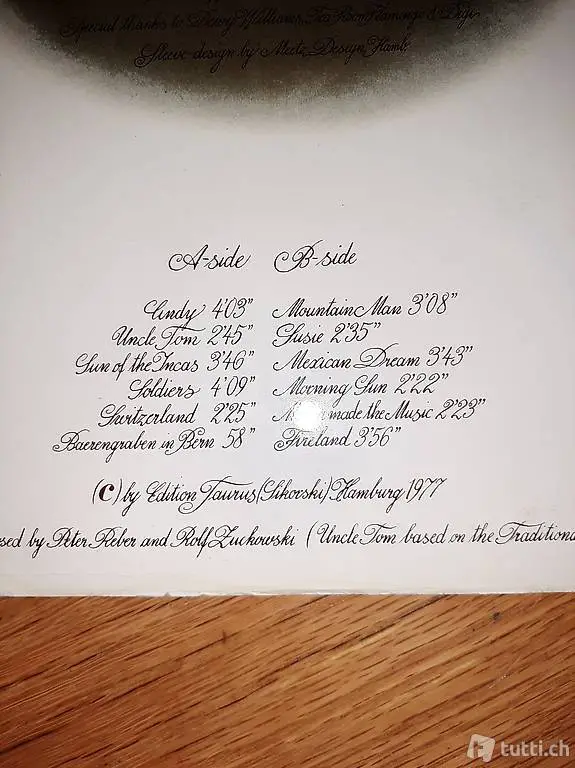 Special thanks to Dewy Williams, Tea Room Flamingo & Digi
Sleeve design by Meetz Design, Hamb
A-side B-side
Cindy 4'03" Mountain Man 3'08"
Uncle Tom 2'45" Susie 2'35"
Sun of the Incas 3'46" Mexican Dream 3'43"
Soldiers 4'09" Morning Sun 2'22"
Switzerland 2'25" made the Music 2'23"
Baerengraben in Bern 58" Fireland 3'56"
(C) by Edition Taurus (Sikorski) Hamburg 1977
sed by Peter Reber and Rolf Zuckowski (Uncle Tom based on the Traditiona
tutti.ch